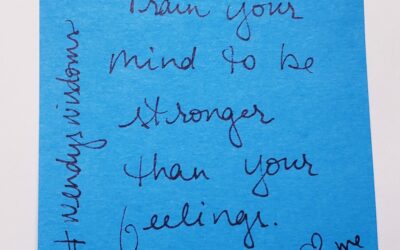 Train your
mind to be
stronger
than your
feelings.
me
#wendyswisdoms